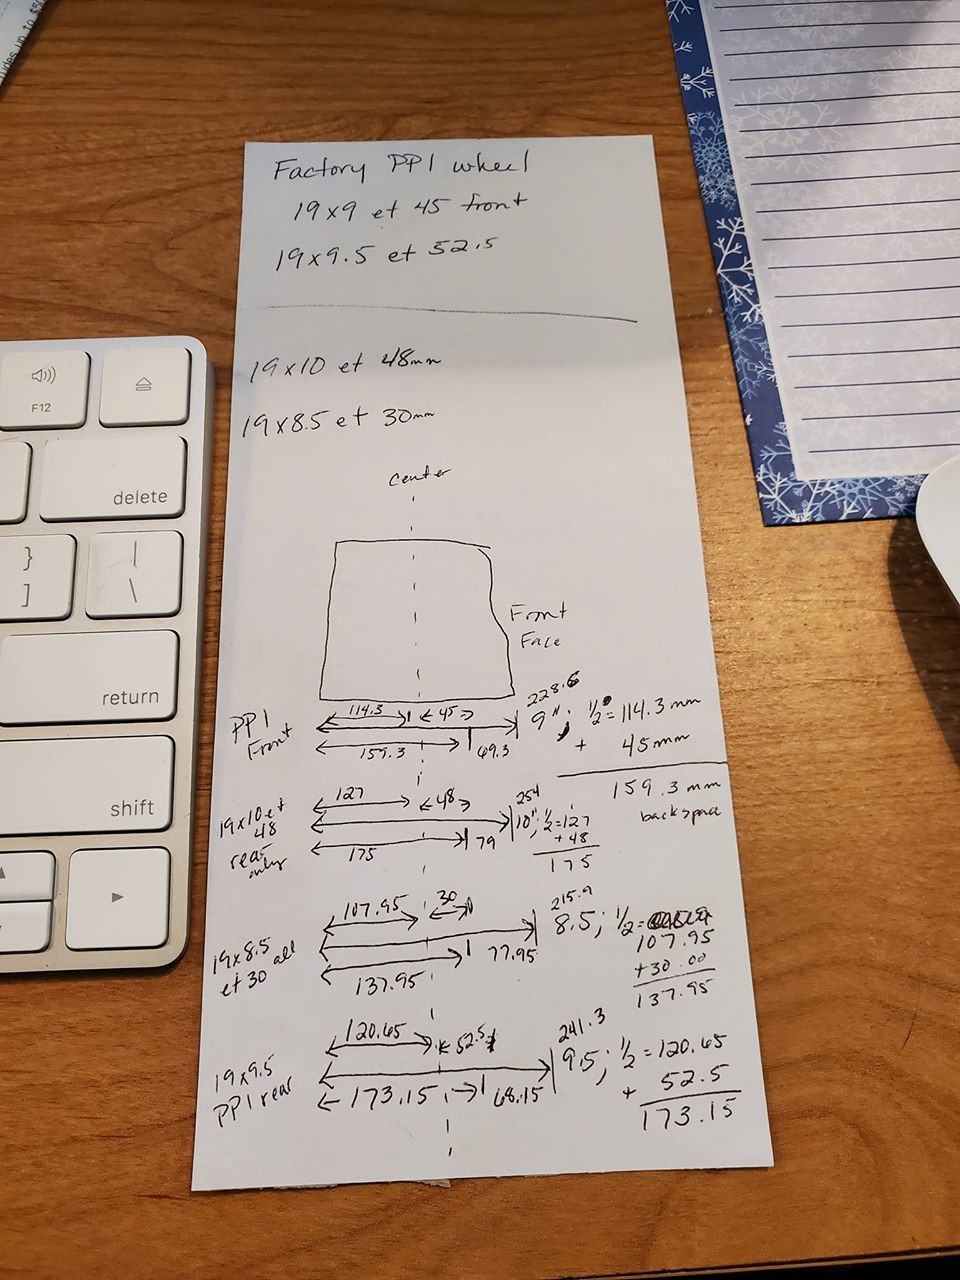 udes up to $50
Factory PP1 wheel
19x9 et 45 front
19x9.5 et 52.5
19x10 et 48mm
19x8.5 et 30mm
center
Front
Face
PP1
Front
114.3
45
159.3
69.3
228.6
9"; 1/2 = 114.3 mm
+ 45mm
159.3 mm
backspace
19x10 et
48
rear
only
127
48
175
79
254
10"; 1/2=127
+48
175
19x8.5
et 30 all
107.95
30
137.95
77.95
215.9
8.5; 1/2=
107.95
+30.00
137.95
19x9.5
PP1 rear
120.65
52.5
173.15
68.15
241.3
9.5; 1/2 = 120.65
+ 52.5
173.15
F12
delete
}
]
|
\
return
shift